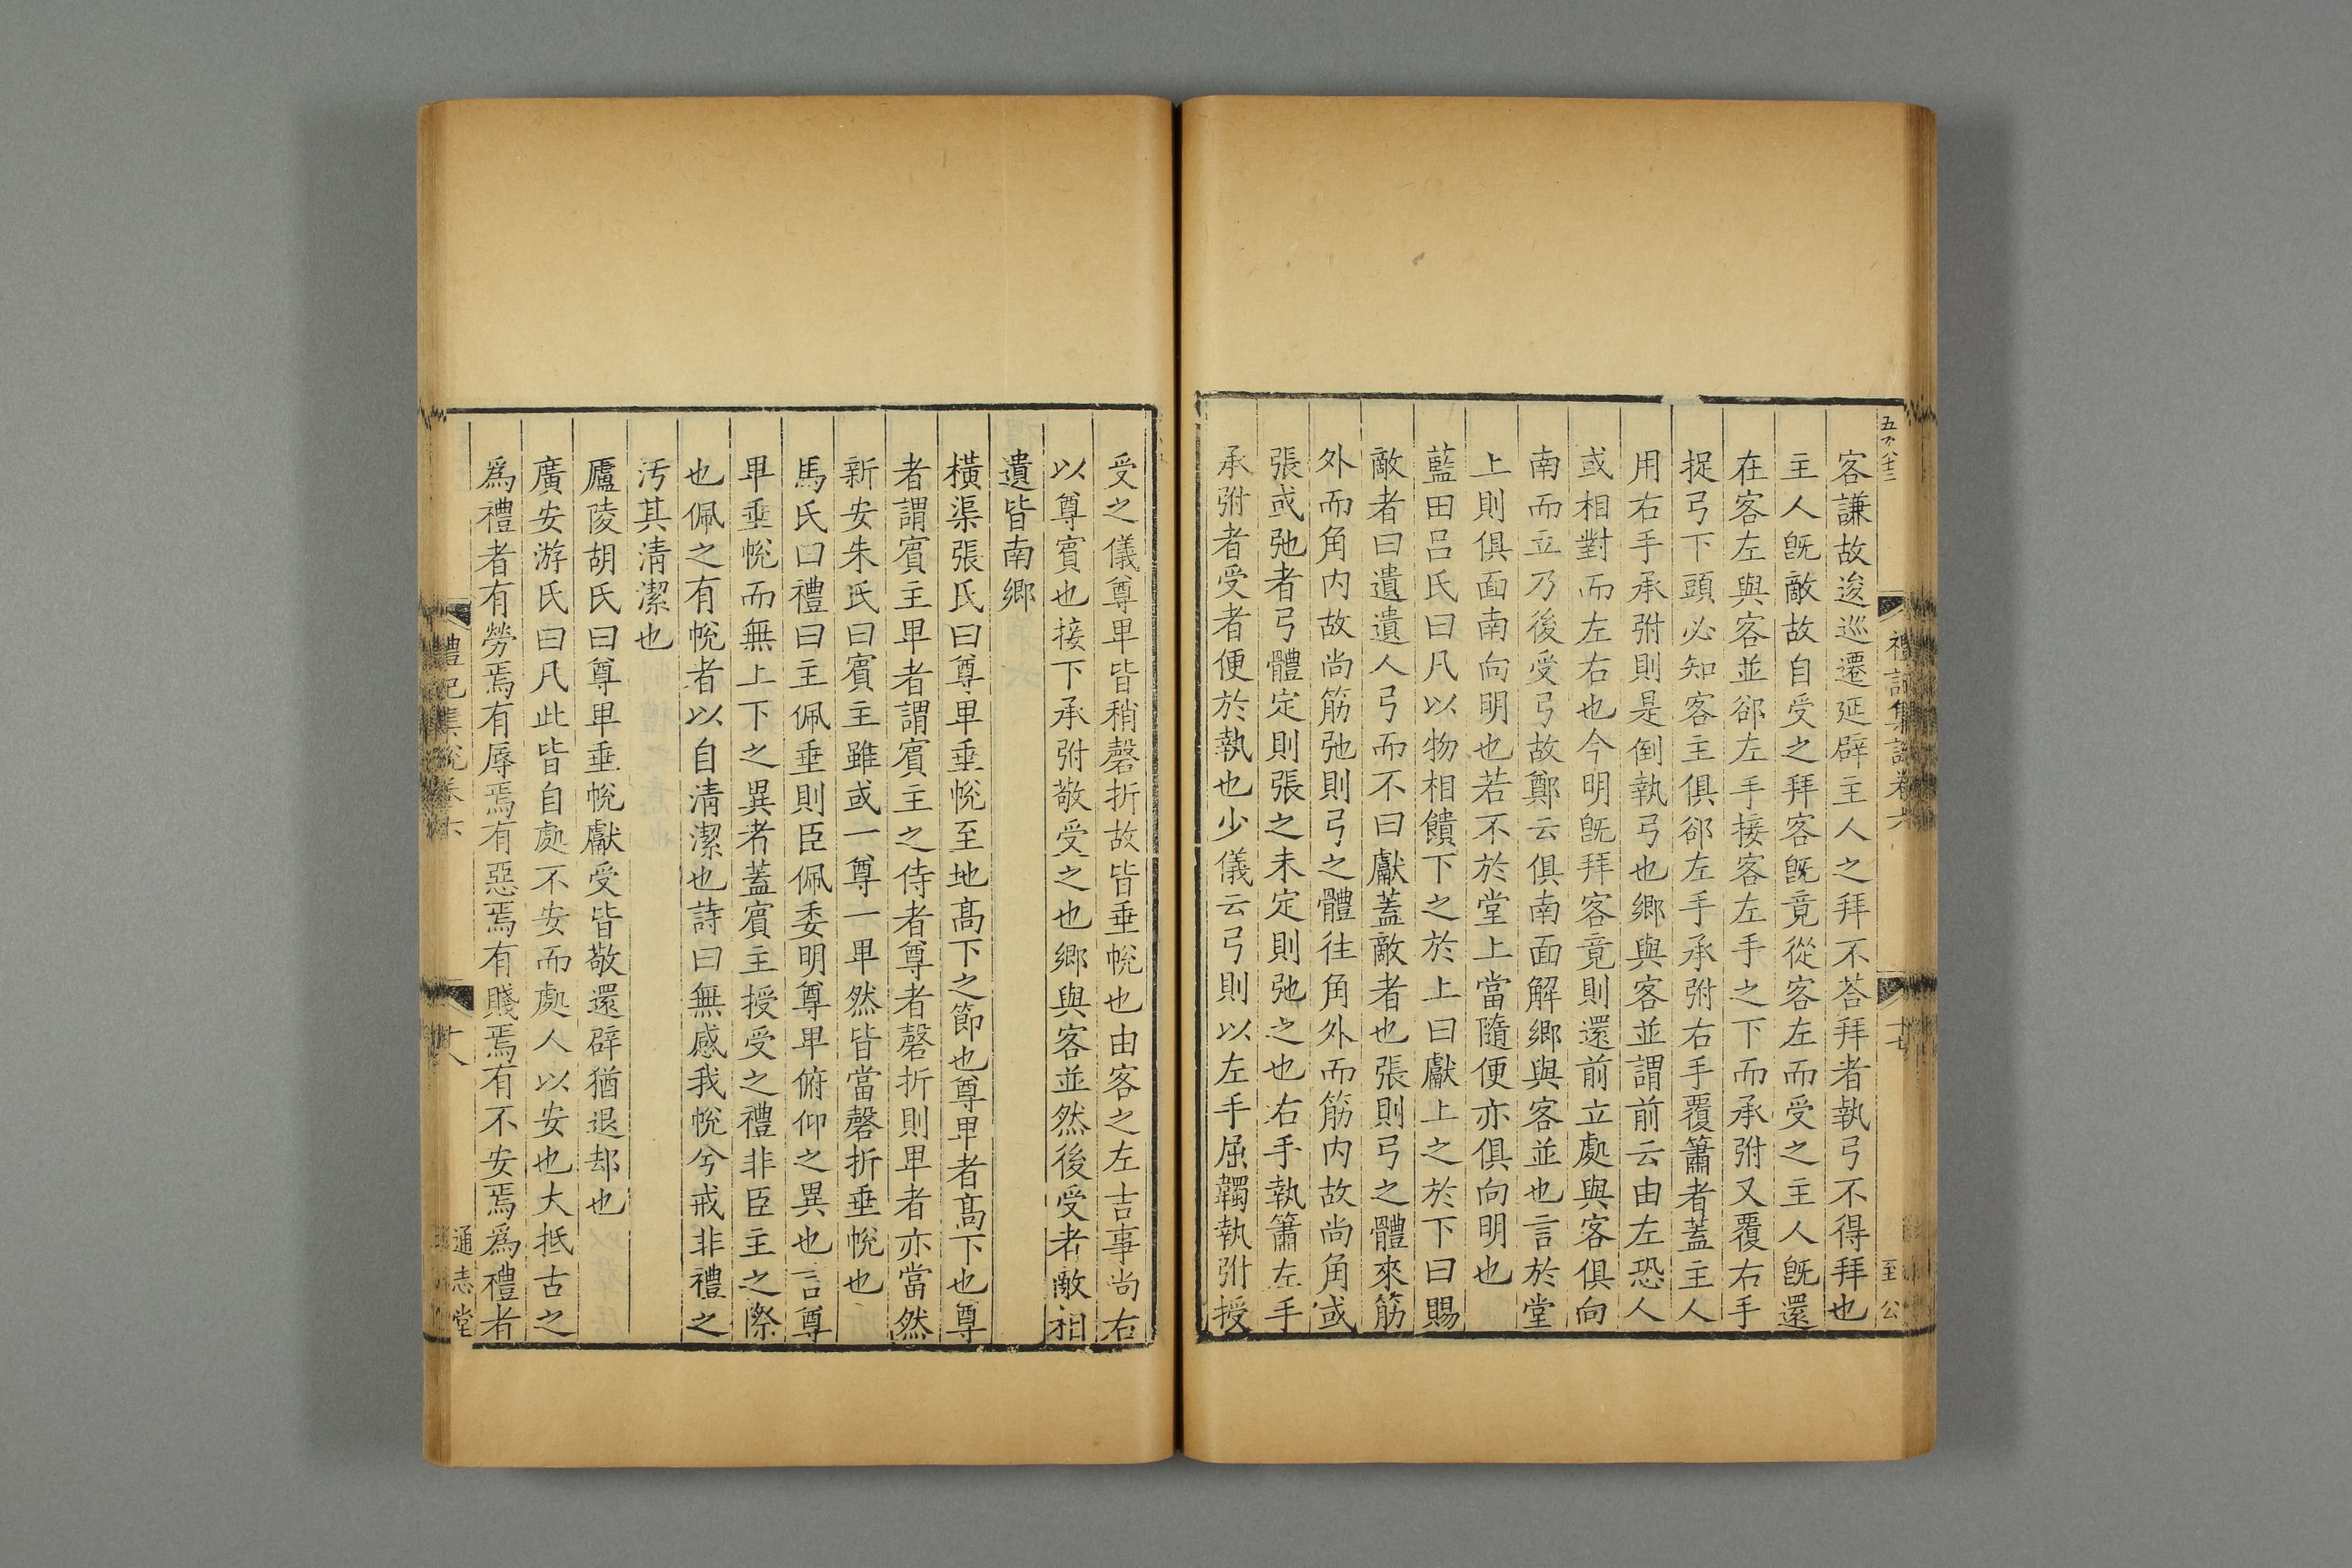 五百八十三
禮記集說卷六
十七
至公
客謙故逡巡遷延辟主人之拜不荅拜者執弓不得拜也
主人旣敵故自受之拜客旣竟從客左而受之主人旣還
在客左與客並郤左手接客左手之下而承弣又覆右手
捉弓下頭必知客主俱郤左手承弣右手覆簫者蓋主人
用右手承弣則是倒執弓也鄉與客並謂前云由左恐人
或相對而左右也今明旣拜客竟則還前立處與客俱向
南而立乃後受弓故鄭云俱南面解鄉與客並也言於堂
上則俱面南向明也若不於堂上當隨便亦俱向明也
藍田呂氏曰凡以物相饋下之於上曰獻上之於下曰賜
敵者曰遺遺人弓而不曰獻蓋敵者也張則弓之體來筋
外而角内故尚筋弛則弓之體往角外而筋内故尚角或
張或弛者弓體定則張之未定則弛之也右手執簫左手
承弣者受者便於執也少儀云弓則以左手屈韣執弣授
受之儀尊卑皆稍磬折故皆垂帨也由客之左吉事尚右
以尊賓也接下承弣敬受之也鄉與客並然後受者敵相
遺皆南鄉
橫渠張氏曰尊卑垂帨至地高下之節也尊卑者高下也尊
者謂賓主卑者謂賓主之侍者尊者磬折則卑者亦當然
新安朱氏曰賓主雖或一尊一卑然皆當磬折垂帨也
馬氏曰禮曰主佩垂則臣佩委明尊卑俯仰之異也言尊
卑垂帨而無上下之異者蓋賓主授受之禮非臣主之際
也佩之有帨者以自清潔也詩曰無感我帨兮戒非禮之
汚其清潔也
廬陵胡氏曰尊卑垂帨獻受皆敬還辟猶退却也
廣安游氏曰凡此皆自處不安而處人以安也大抵古之
爲禮者有勞焉有辱焉有惡焉有賤焉有不安焉爲禮者
禮記集說卷六
十八
通志堂